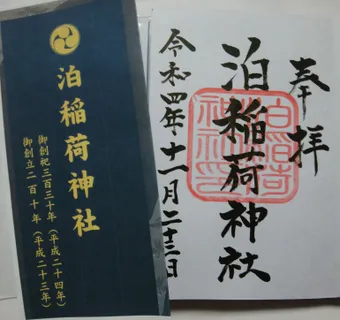 泊稲荷神社
御創祀三百三十年(平成二十四年)
御創立二百十年(平成二十三年)
奉拝
泊稲荷神社
令和四年十一月二十三日